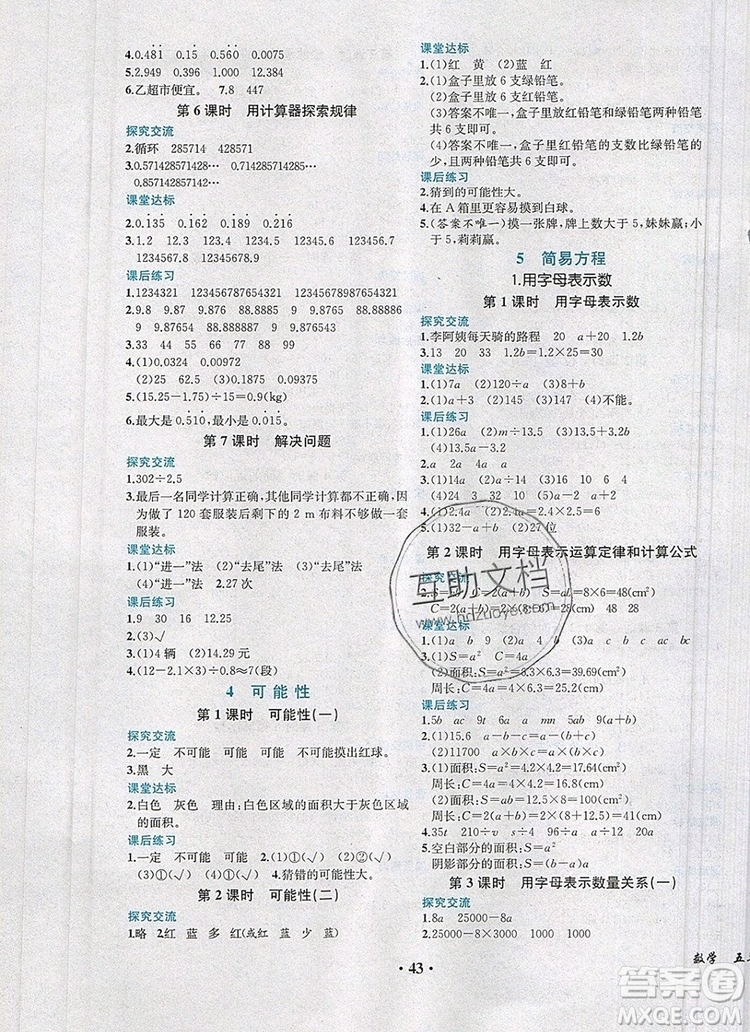 4.0.481 0.15 0.560 0.0075
5.2.949 1.306 1.224 12.388
6.乙超市便宜。 7.8 447
第6课时 用计算器探索规律
探究交流
2.循环 285714 428571
3.0.571428571428… 0.714285714285…
0.857142857142…
课堂达标
2.0.135 0.162 0.189 0.216
3.1.2 12.3 123.4 1234.5 12345.6
123456.7 1234567.8 12345678.9
课后练习
1.1234321 123454321 12345654321
2.9.8 9.87 88.8 9.876 88.88 9.8765
9 9.87654 88.8888 9 9.87654 88.8888
3.33 44 55 66 99
4.(1)0.0324 0.00972
(2)25 0.48 0.04 0.02
5.(15.25-1.75)÷15=0.9(kg)
6.最大是0.510,最小是0.015。
第7课时 解决问题
探究交流
1.302÷2.5
3.最后一名同学计算正确,其他同学计算都不正确,因
为做了120套服装后剩下的2 m布料不够做一套
服装。
课堂达标
1.(1)“进一”法 (2)“去尾”法 (3)“去尾”法
(4)“进一”法 2.27次
课后练习
1.9 30 16 12.25
2.(3)√
3.(1)4辆 (2)14.29元
4.(12-2.1×3)÷0.8≈7(段)
4 可能性
第1课时 可能性(一)
探究交流
2.一定 不可能 可能 可能 不可能摸出红球。
3.黑 大
课堂达标
2.白色 灰色 理由:白色区域的面积大于灰色区域
的面积。
课后练习
1.一定 不可能 可能 2.(1)①(√) (2)①(√)
3.(1)①(√) (2)③(√) 4.猜错的可能性大。
第2课时 可能性(二)
探究交流
1.略 2.红 蓝 多 红(或红 蓝 少 蓝)
课堂达标
1.(1)红 黄 (2)蓝 红
2.(1)盒子里放6支绿铅笔。
(2)盒子里放6支红铅笔。
(3)答案不唯一,例如:放红铅笔和绿铅笔两种铅笔
共6支即可。
(4)答案不唯一,例如:放蓝铅笔和红铅笔两种铅
笔,且两种铅笔共6支即可。
课后练习
2.猜到的可能性大。
4.在A箱里更容易摸到白球。
5.(答案不唯一)摸一张牌,牌上数大于5,妹妹赢;小
于5,莉莉赢。
5 简易方程
1.用字母表示数
第1课时 用字母表示数
探究交流
1.李阿姨每天骑的路程 20 a+2 20
3.13 20 30 1.2a=1.2×15=18
课堂达标
1.(1)7a (2)120÷c (3)8+b
2.(1)a+3 (2)145 (3)16 (4)不能。
课后练习
1.(1)26a (2)m÷13.5 (3)3.2b
2.4a a+b m-n
3.(1)14a (2)37-b (3)16 10 6 4
(4)24 3 10 32
4.(1)2.4a (2)2.4a-b
5.(1)32-a (2)27位
第2课时 用字母表示运算定律和计算公式
探究交流
C=2(a+b)=2×(8+6)=28(cm) 48 28
课堂达标
3.(1)S=a² C=4a
(2)面积:S=a²=6.3×6.3=39.69(cm²)
周长:C=4a=4×6.3=25.2(cm)
课后练习
1.5b ac 9t 6a a² x²
2.(1)15.6 a-b-c a-(b+c)
(2)11700 a×b×c a×(b×c)
3.(1)面积:S=a²=4.2×4.2=17.64(cm²)
周长:C=4a=4×4.2=16.8(cm)
(2)面积:S=ab=12.5×8=100(cm²)
周长:C=2(a+b)=2×(12.5+8)=41(cm)
5.空白部分的面积:S=a²
阴影部分的面积:S=(b-a)a
第3课时 用字母表示数量关系(一)
探究交流
1.8a 25000-8a
2.25000-8×3000=1000 1000
• 43 •
数学 五
互助文档
www.hdzuoye.com
答案圈
MXQE.COM